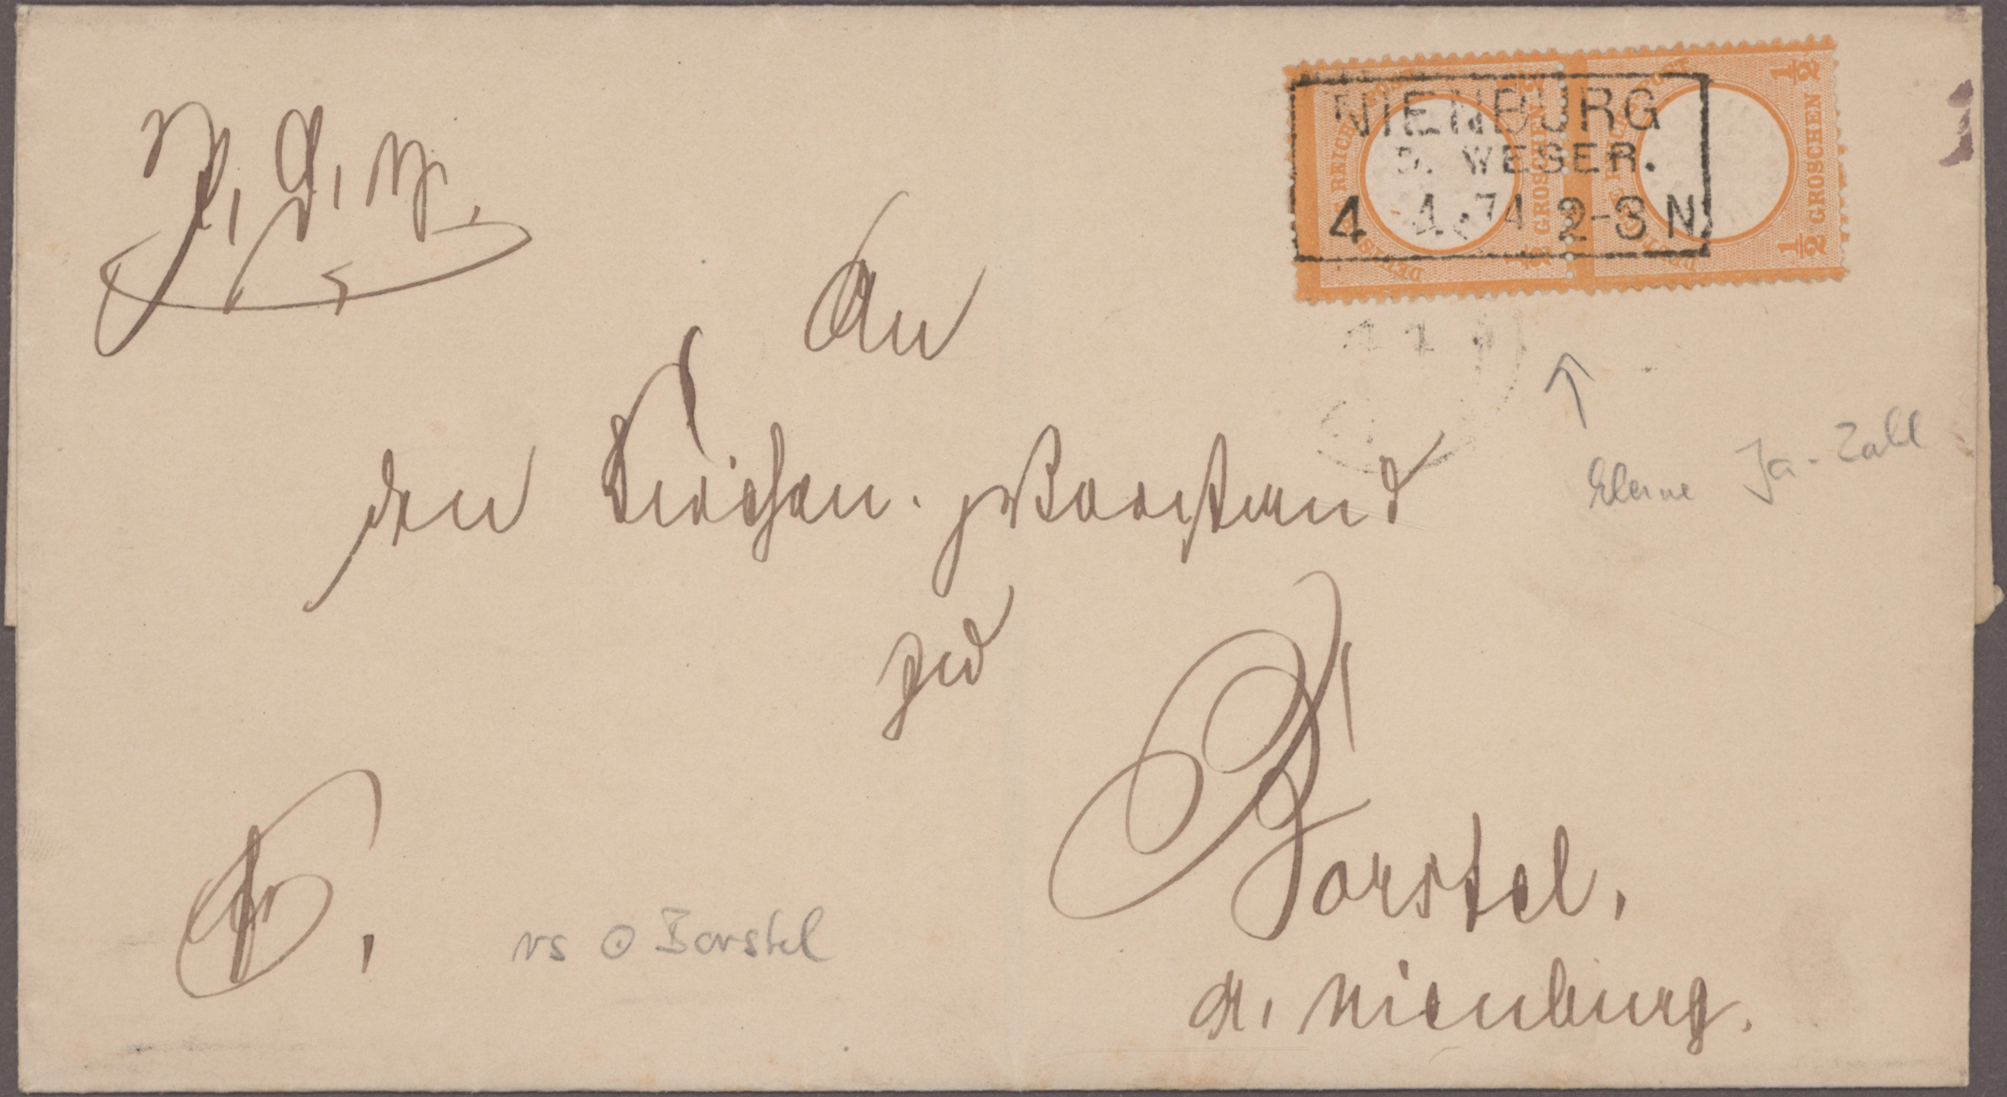 NIENBURG
D. WESER.
4 4 74 2-3 N
DEUTSCHE REICHS-POST
½ GROSCHEN ½
½ GROSCHEN ½
An
den Kirchen-Vorstand
zu
Borstel.
A. Nienburg.
kleine Ja-Zahl
rs ⊙ Borstel